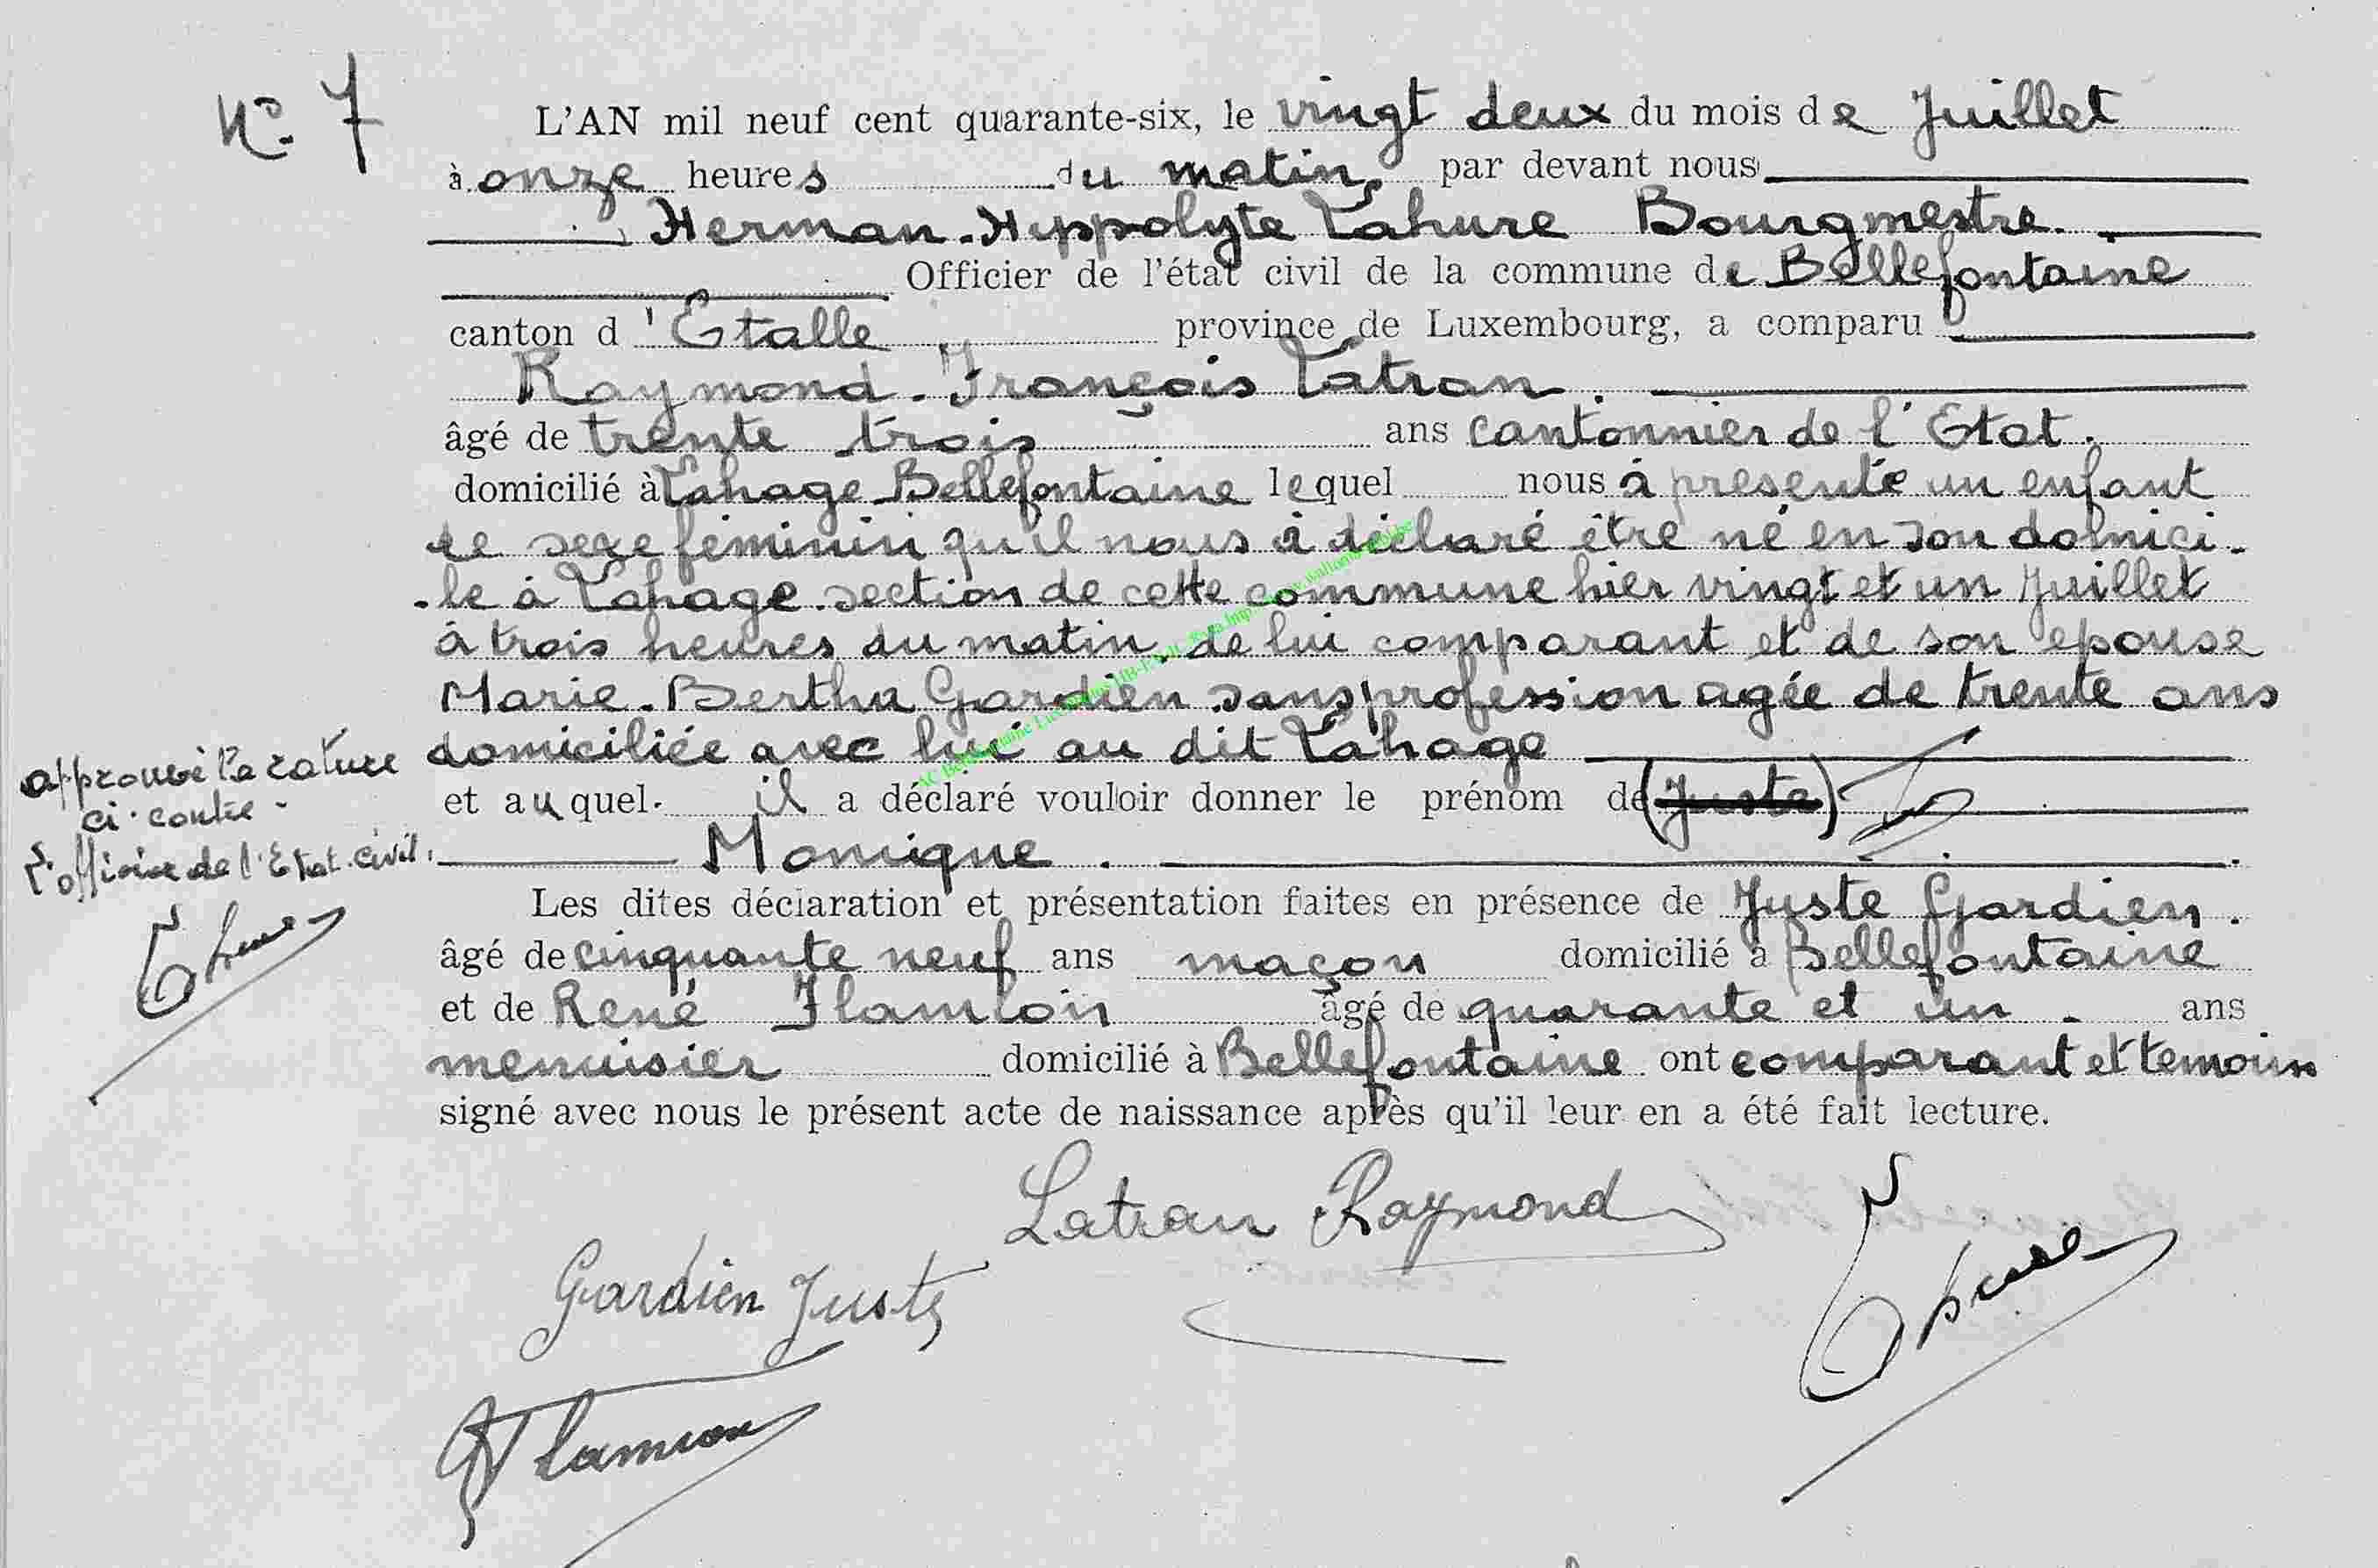 No. 7
L'AN mil neuf cent quarante-six, le vingt deux du mois de Juillet
à onze heures du matin, par devant nous
Herman-Hippolyte Lahure Bourgmestre.
Officier de l'état civil de la commune de Bellefontaine
canton d'Etalle province de Luxembourg, a comparu
Raymond-François Latran.
âgé de trente trois ans cantonnier de l'Etat.
domicilié à Lahage Bellefontaine lequel nous à présenté un enfant
de sexe féminin qu'il nous à déclaré être né en son domici-
-le à Lahage section de cette commune hier vingt et un Juillet
à trois heures du matin, de lui comparant et de son epouse
Marie-Bertha Gardien sans profession agée de trente ans
domiciliée avec lui au dit Lahage
et auquel il a déclaré vouloir donner le prénom de (Juste)
Monique.
approuvé la rature
ci-contre -
L'officier de l'Etat-civil.
Lahure
Les dites déclaration et présentation faites en présence de Juste Gardien.
âgé de cinquante neuf ans maçon domicilié à Bellefontaine
et de René Flamion âgé de quarante et un - ans
menuisier domicilié à Bellefontaine ont comparant et temoins
signé avec nous le présent acte de naissance après qu'il leur en a été fait lecture.
Latran Raymond
Lahure
Gardien Juste
Flamion